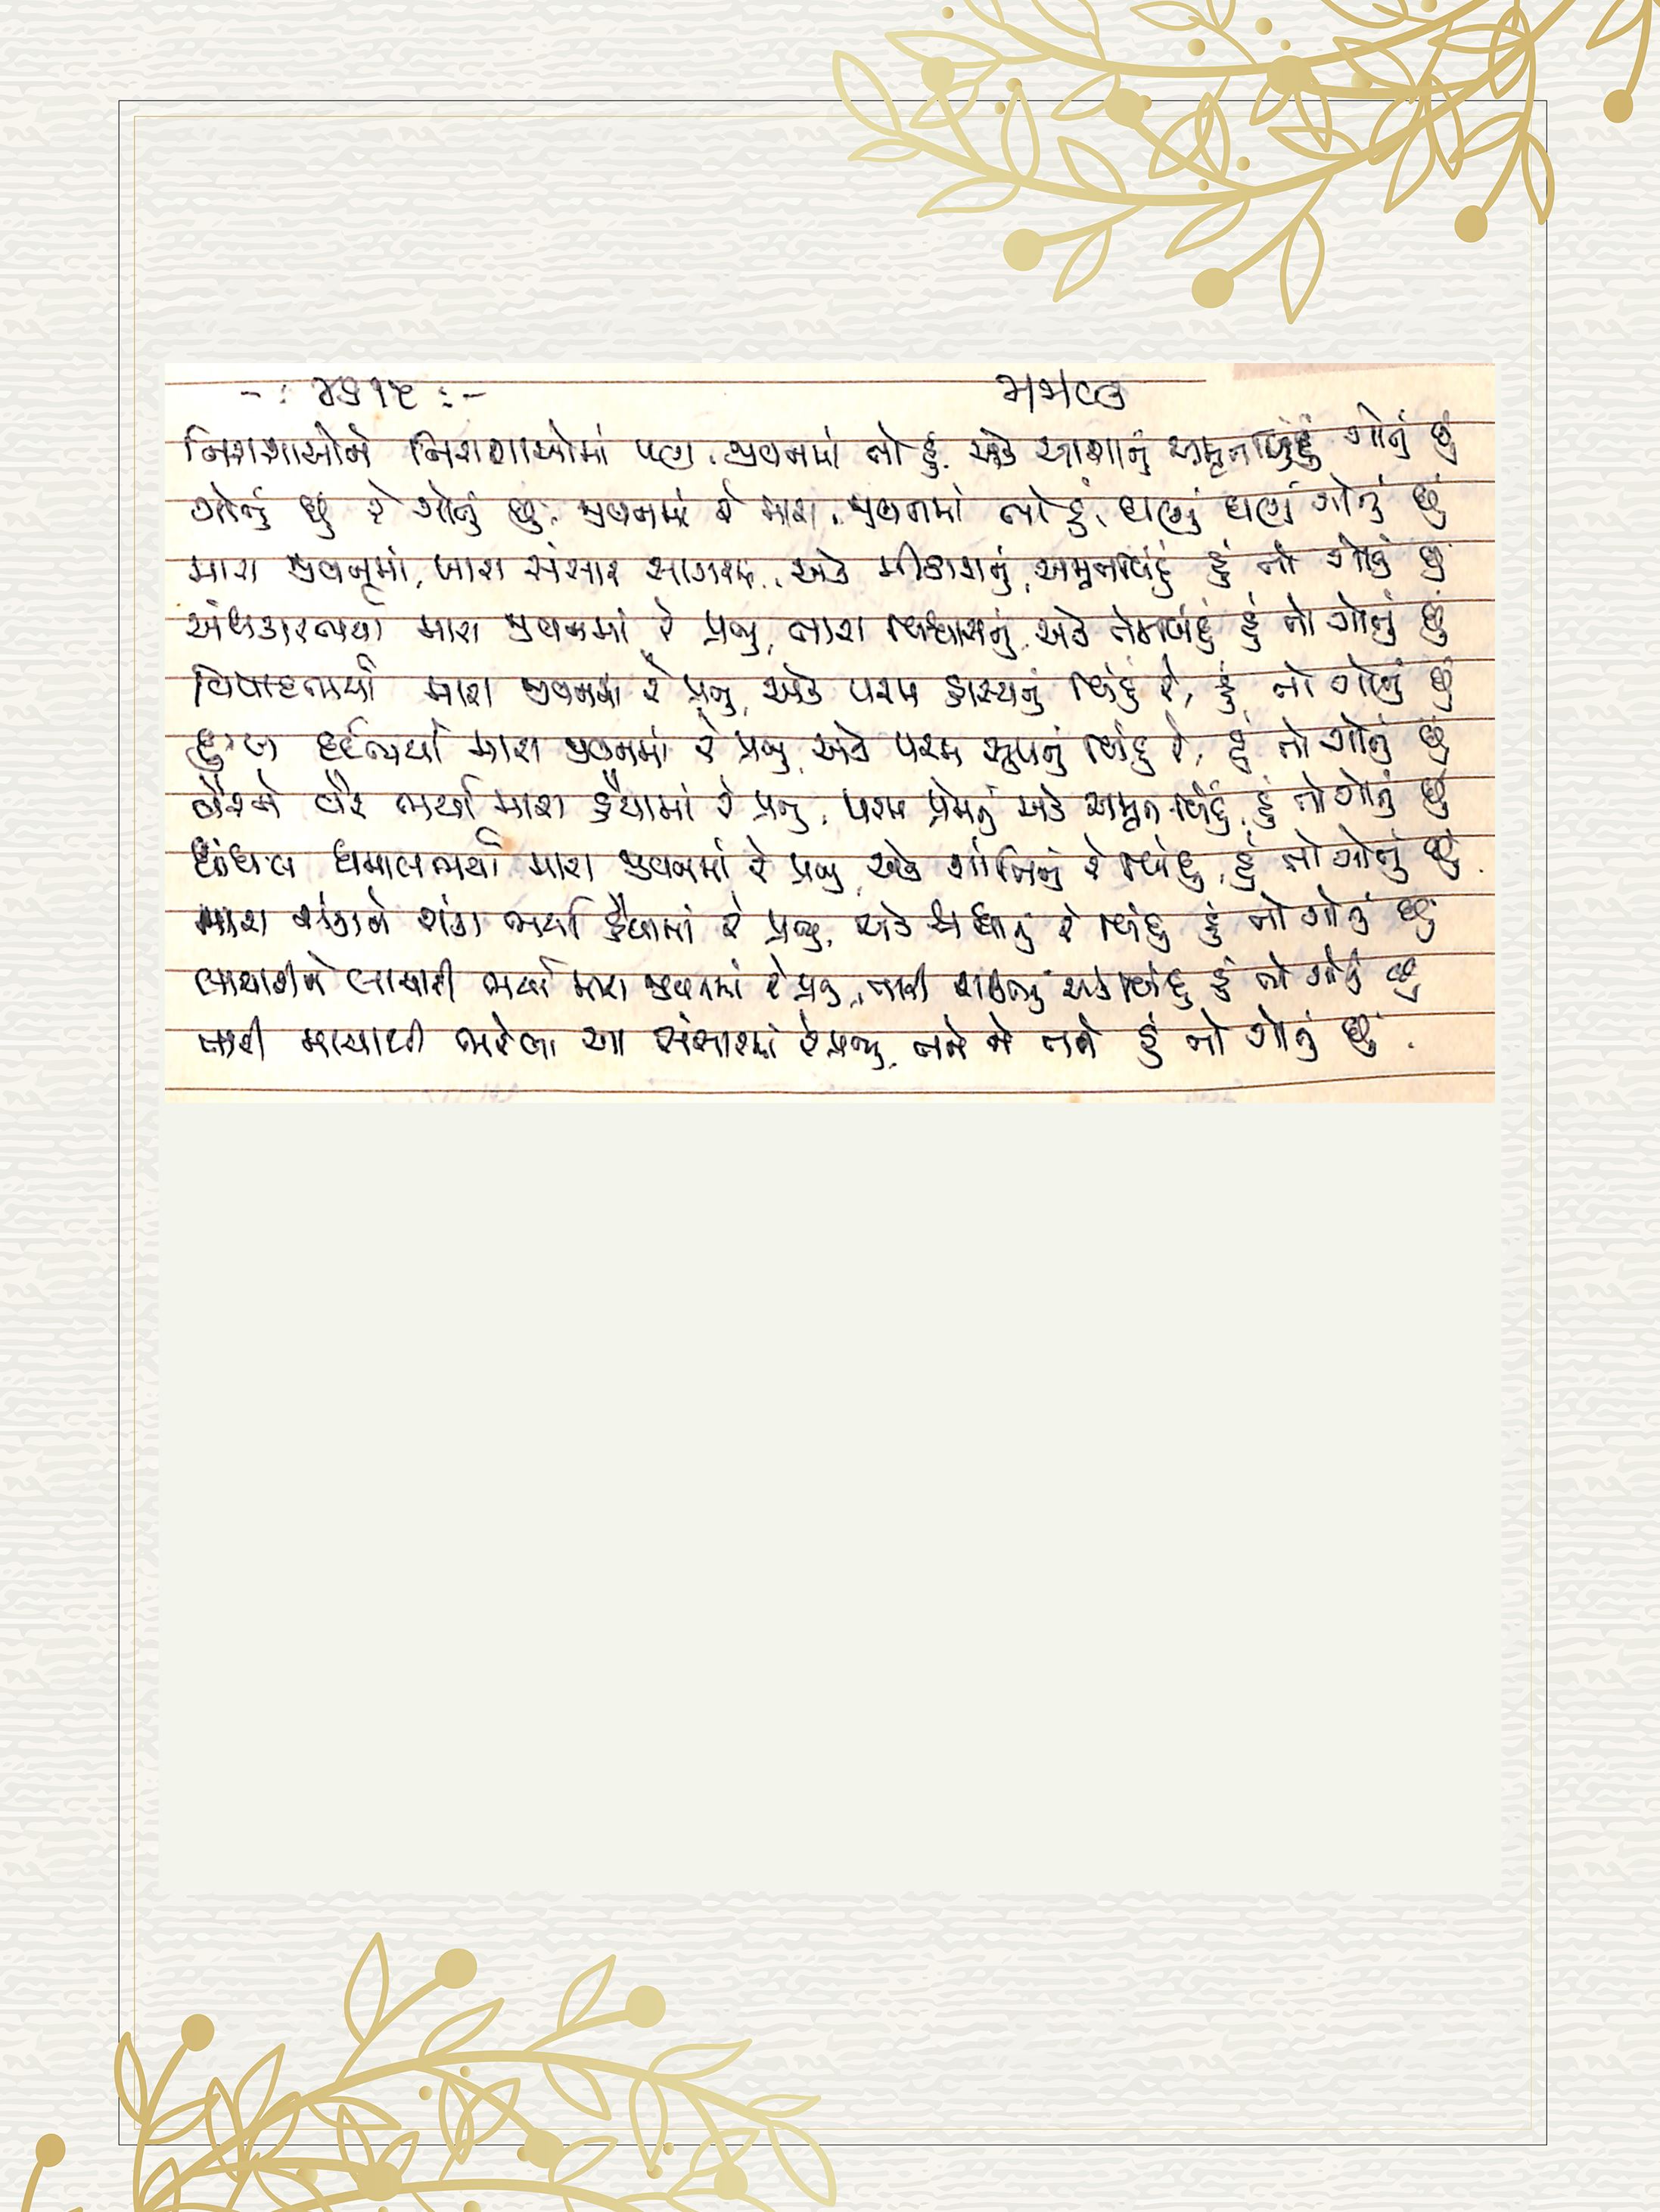 નિરાશાઓને નિરાશાઓમાં પણ, જીવનમાં તો હું, એક આશાનું અમૃતબિંદુ ગોતું છું
ગોતું છું રે ગોતું છું, જીવનમાં રે મારા, જીવનમાં તો હું, ઘણું ઘણું ગોતું છું
મારા જીવનમાં, ખારા સંસાર સાગરમાં, એક મીઠાશનું, અમૃતબિંદુ હું તો ગોતું છું
અંધકારભર્યા મારા જીવનમાં રે પ્રભુ, તારા વિશ્વાસનું, એક તેજબિંદુ હું તો ગોતું છું
વિષાદભર્યા મારા જીવનમાં રે પ્રભુ, એક પરમ હાસ્યનું બિંદુ રે, હું તો ગોતું છું
દુઃખ દર્દભર્યા મારા જીવનમાં રે પ્રભુ, એક પરમ સુખનું બિંદુ રે, હું તો ગોતું છું
વૈરને વૈર ભર્યા મારા હૈયામાં રે પ્રભુ, પરમ પ્રેમનું એક અમૃત બિંદુ, હું તો ગોતું છું
ધાંધલ ધમાલભર્યા મારા જીવનમાં રે પ્રભુ, એક શાંતિનું રે બિંદુ, હું તો ગોતું છું.
મારા શંકાને શંકા ભર્યા હૈયામાં રે પ્રભુ, એક શ્રધ્ધાનું રે બિંદુ હું તો ગોતું છું
લાચારીને લાચારી ભર્યા મારા જીવનમાં રે પ્રભુ, તારી શક્તિનું એક બિંદુ હું તો ગોતું છું
તારી માયાથી ભરેલા આ સંસારમાં રે પ્રભુ, તને ને તને હું તો ગોતું છું.